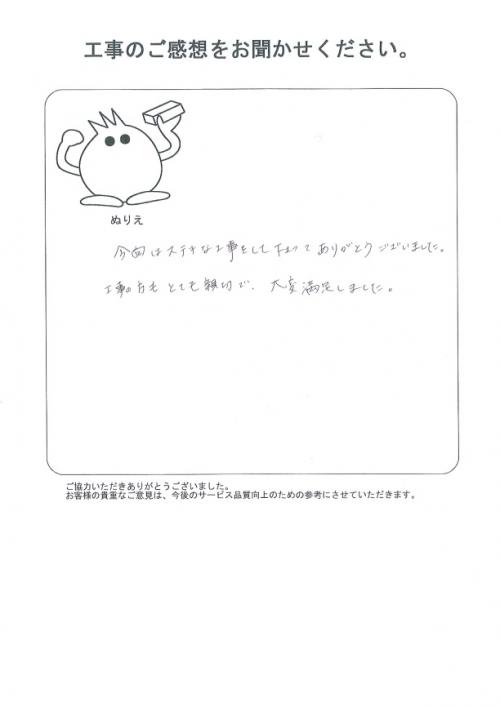 工事のご感想をお聞かせください。
ぬりえ
今回はステキな工事をして下さってありがとうございました。
工事の方もとても親切で、大変満足しました。
ご協力いただきありがとうございました。
お客様の貴重なご意見は、今後のサービス品質向上のための参考にさせていただきます。